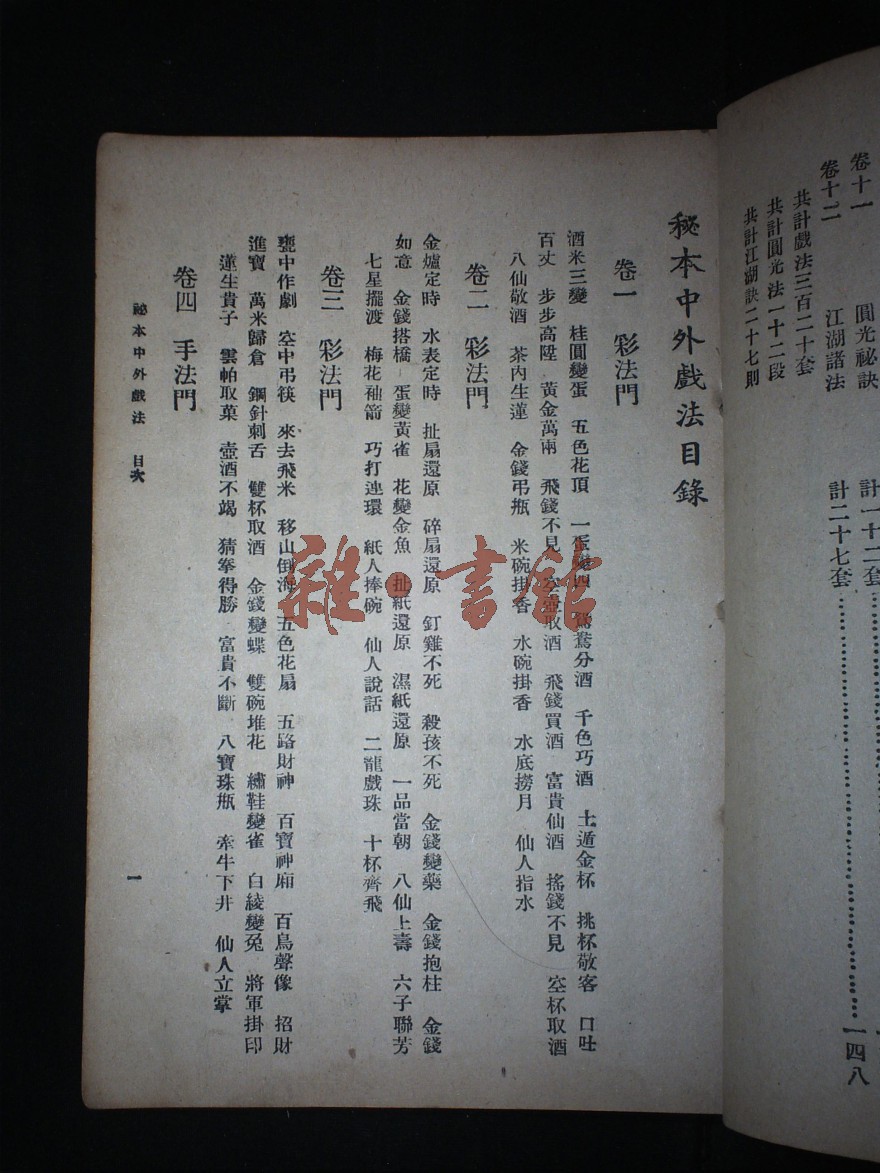 卷十一 圓光祕訣 計一十二套
卷十二 江湖諸法 計二十七套 一四八
共計戲法三百二十套
共計圓光法一十二段
共計江湖訣二十七則
秘本中外戲法目錄
卷一 彩法門
酒米三變 桂圓變蛋 五色花頂 一蛋變四 鴛鴦分酒 千色巧酒 土遁金杯 挑杯敬客 口吐
百丈 步步高陞 黃金萬兩 飛錢不見 空壺取酒 飛錢買酒 富貴仙酒 搖錢不見 空杯取酒
八仙敬酒 茶內生蓮 金錢弔瓶 米碗掛香 水碗掛香 水底撈月 仙人指水
卷二 彩法門
金爐定時 水表定時 扯扇還原 碎扇還原 釘雞不死 殺孩不死 金錢變藥 金錢抱柱 金錢
如意 金錢搭橋 蛋變黃雀 花變金魚 扯紙還原 濕紙還原 一品當朝 八仙上壽 六子聯芳
七星擺渡 梅花袖箭 巧打連環 紙人捧碗 仙人說話 二龍戲珠 十杯齊飛
卷三 彩法門
甕中作劇 空中弔筷 來去飛米 移山倒海 五色花扇 五路財神 百寶神廂 百鳥聲像 招財
進寶 萬米歸倉 鋼針刺舌 雙杯取酒 金錢變蝶 雙碗堆花 繡鞋變雀 白綾變兔 將軍掛印
蓮生貴子 雲帕取菓 壺酒不竭 猜拳得勝 富貴不斷 八寶珠瓶 牽牛下井 仙人立掌
卷四 手法門
祕本中外戲法 目次
一
雜·書館